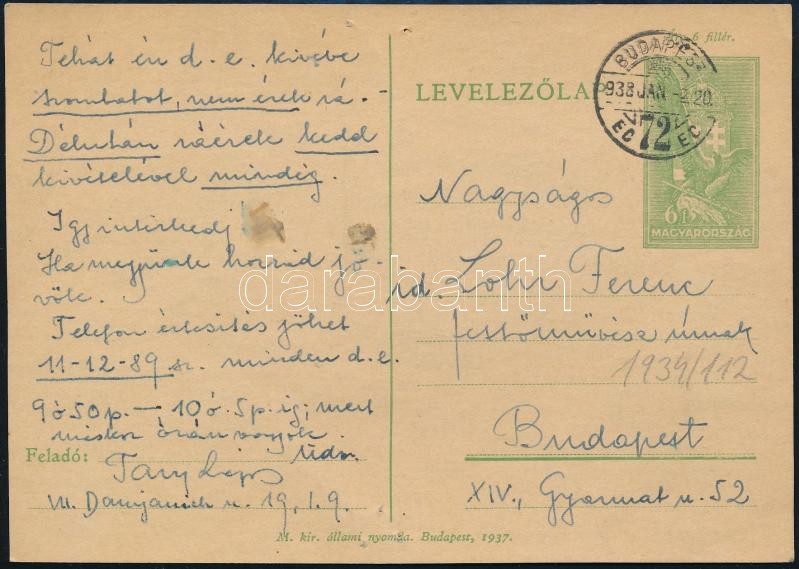 Tehát én d. e. kivéve
szombatot, nem érek rá. -
Délután ráérek kedd
kivételével mindig.
Igy intézkedj!
Ha megjünk hozzád jö-
vök.
Telefon értesítés jöhet
11-12-89 sz. minden d. e.
9 ó 50 p. — 10 ó. 5 p. ig; mert
máskor órán vagyok.
Üdv.
Feladó:
VII. Damjanich u. 19. I. 9.
6 fillér.
LEVELEZŐLAP
BUDAPEST
938 JAN -2. 20
72
EC EC
6f
MAGYARORSZÁG
Nagyságos
id. Lohr Ferenc
festőművész úrnak
1934/112
Budapest
XIV., Gyarmat u. 52
M. kir. állami nyomda. Budapest, 1937.
darabanth